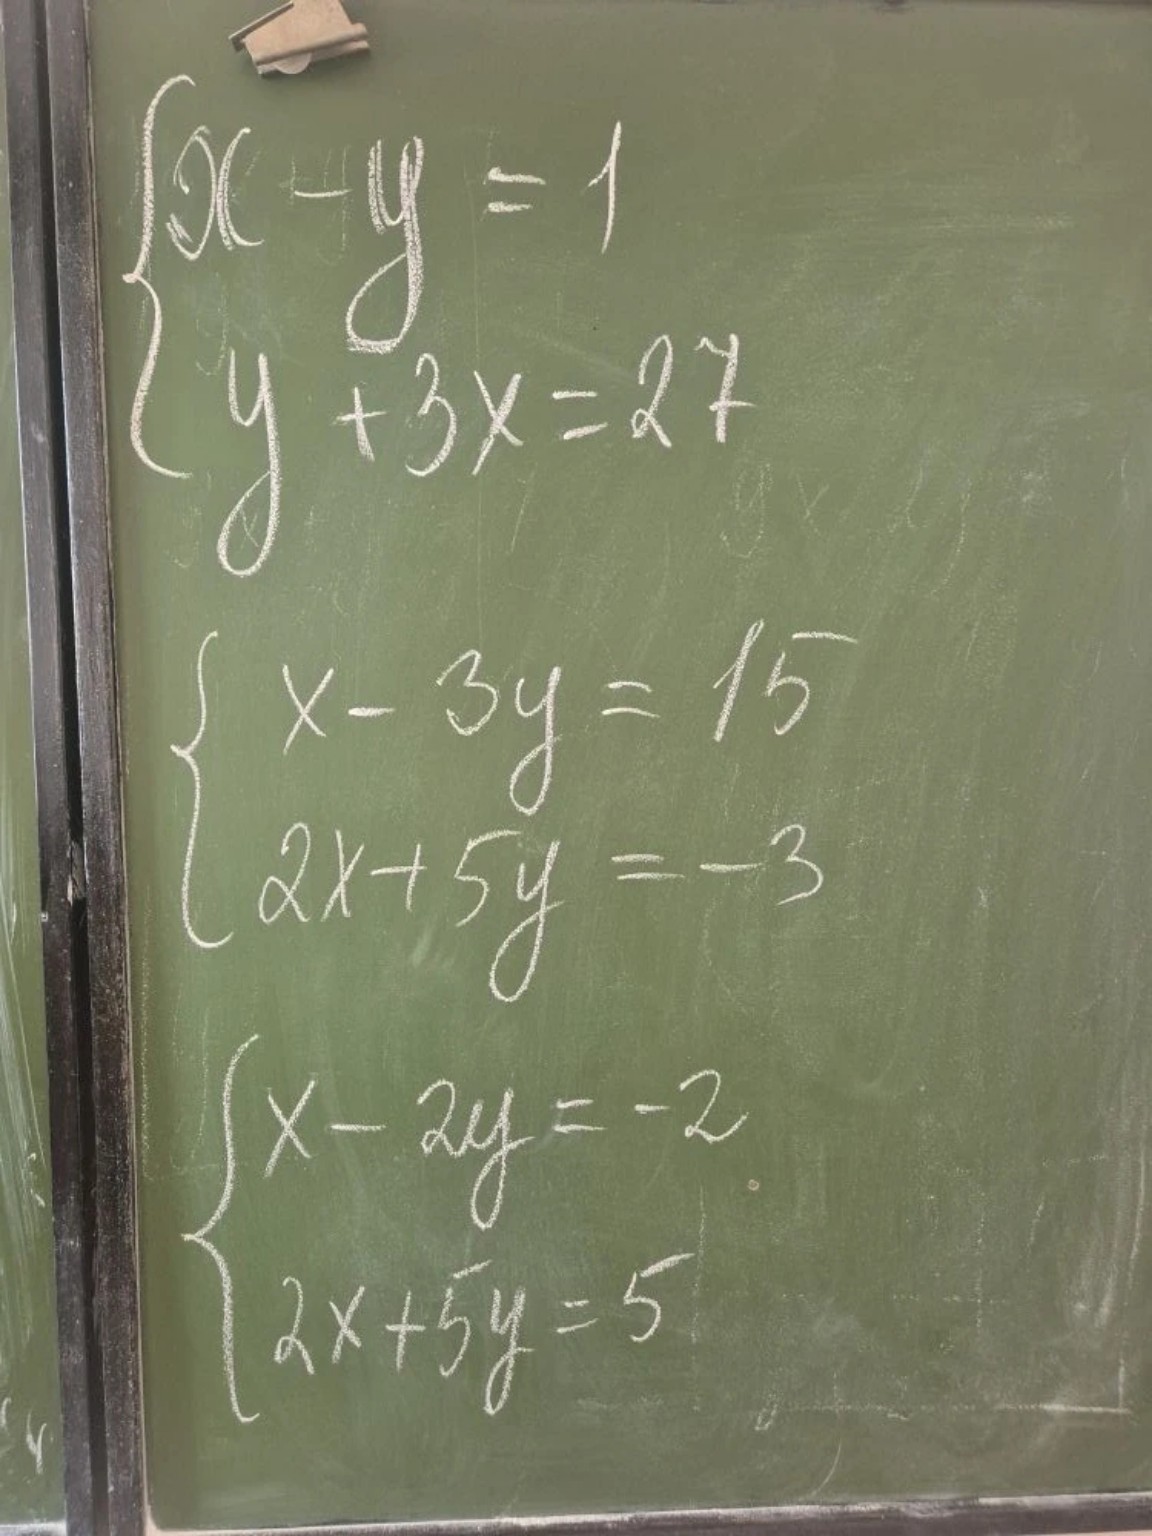 x - y = 1
y + 3x = 27
x - 3y = 15
2x + 5y = -3
x - 2y = -2
2x + 5y = 5